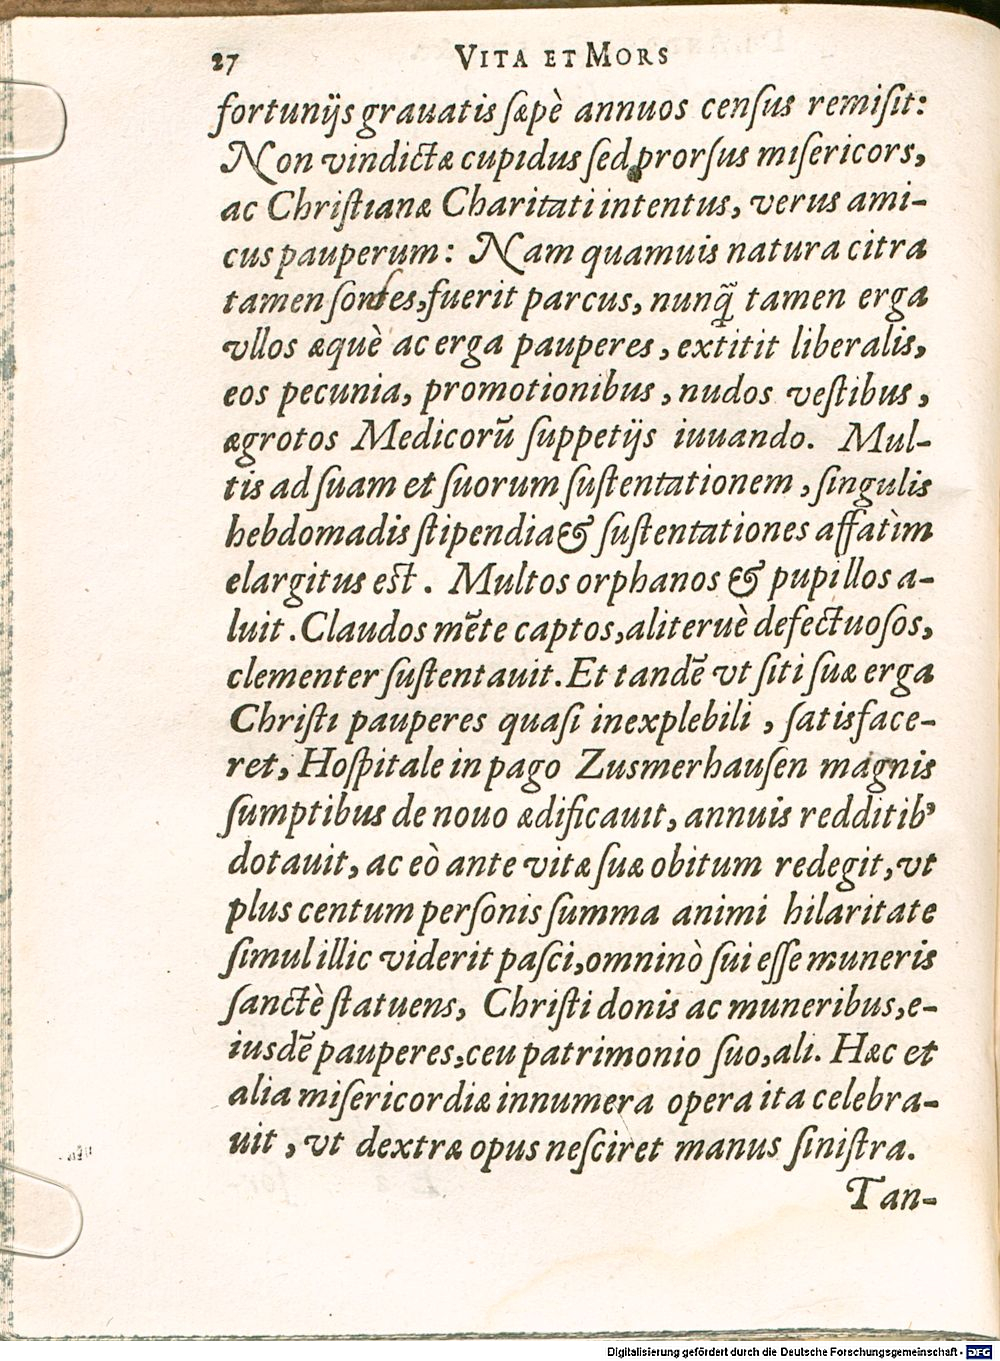 27 VITA ET MORS
fortunijs grauatis sæpè annuos census remisit:
Non vindictæ cupidus sed prorsus misericors,
ac Christianæ Charitati intentus, verus ami-
cus pauperum: Nam quamuis natura citra
tamen sordes, fuerit parcus, nunq̃ tamen erga
vllos æquè ac erga pauperes, extitit liberalis,
eos pecunia, promotionibus, nudos vestibus,
ægrotos Medicorũ suppetijs iuuando. Mul-
tis ad suam et suorum sustentationem, singulis
hebdomadis stipendia & sustentationes affatìm
elargitus est. Multos orphanos & pupillos a-
luit. Claudos mẽte captos, aliteruè defectuosos,
clementer sustentauit. Et tandẽ vt siti suæ erga
Christi pauperes quasi inexplebili, satisface-
ret, Hospitale in pago Zusmerhausen magnis
sumptibus de nouo ædificauit, annuis redditib⁹
dotauit, ac eò ante vitæ suæ obitum redegit, vt
plus centum personis summa animi hilaritate
simul illic viderit pasci, omninò sui esse muneris
sanctè statuens, Christi donis ac muneribus, e-
iusdẽ pauperes, ceu patrimonio suo, ali. Hæc et
alia misericordiæ innumera opera ita celebra-
uit, vt dextræ opus nesciret manus sinistra.
Tan-
Digitalisierung gefördert durch die Deutsche Forschungsgemeinschaft - DFG